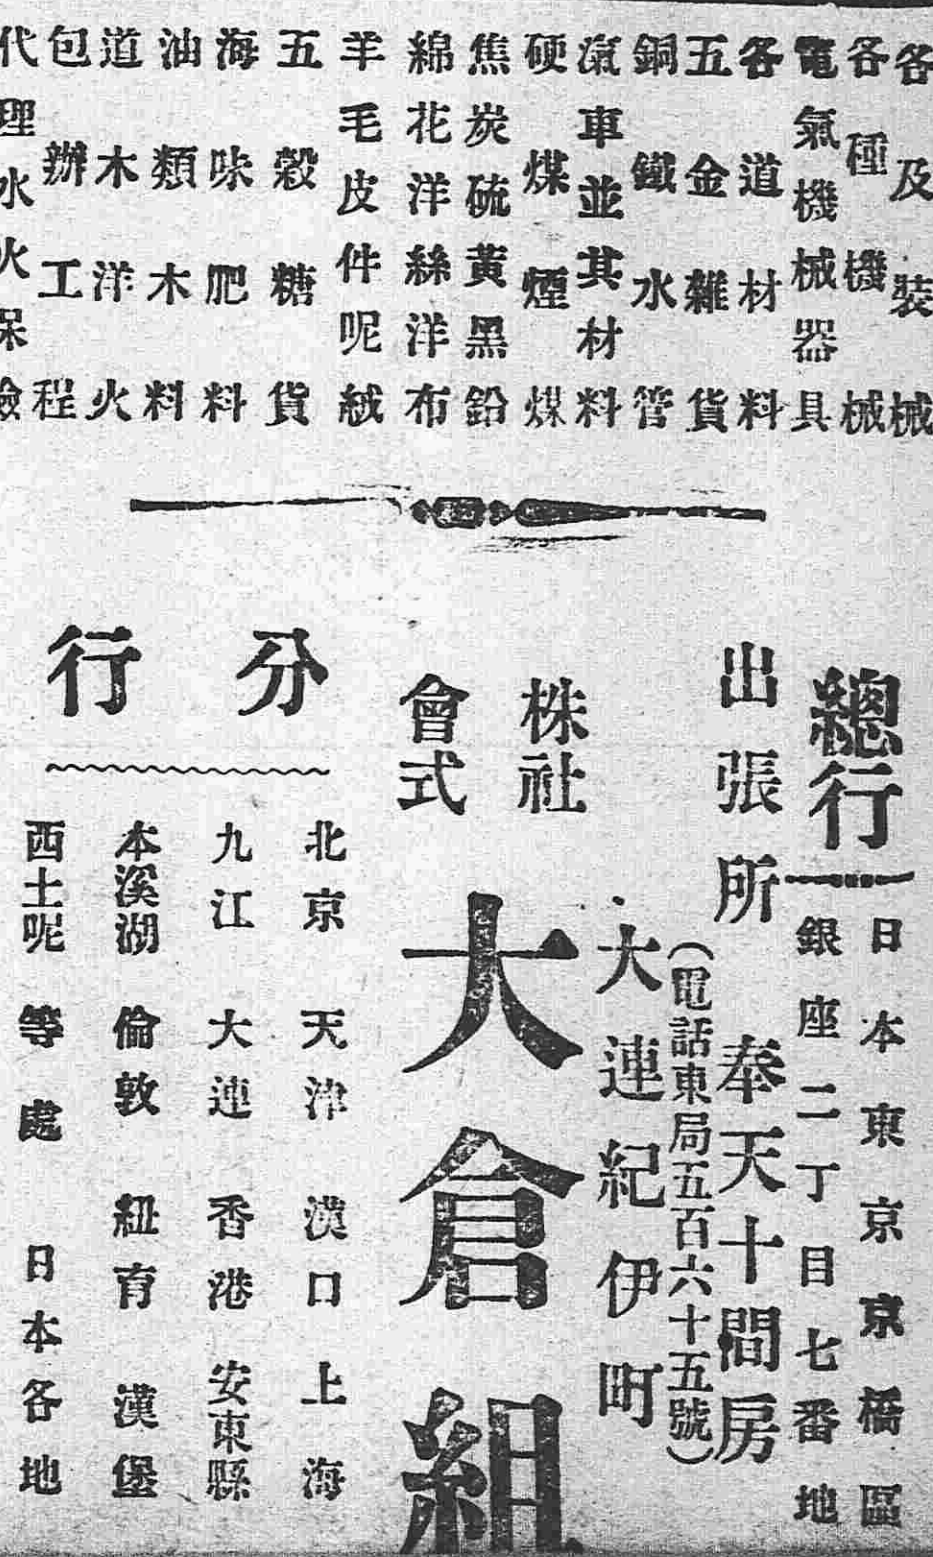 各及裝械
各種機械
電氣機械器具
各道材料
五金雜貨
銅鐵水管
滊車並其材料
硬煤煙煤
焦炭硫黃黑鉛
綿花洋絲洋布
羊毛皮件呢絨
五穀糖貨
海味肥料
油類木料
道木洋火
包辦工程
代理水火保險
總行
日本東京京橋區
銀座二丁目七番地
出張所 奉天十間房
(電話東局五百六十五號)
大連紀伊町
株社
會式
大倉組
分行
北京 天津 漢口 上海
九江 大連 香港 安東縣
本溪湖 倫敦 紐育 漢堡
西土呢 等處 日本各地